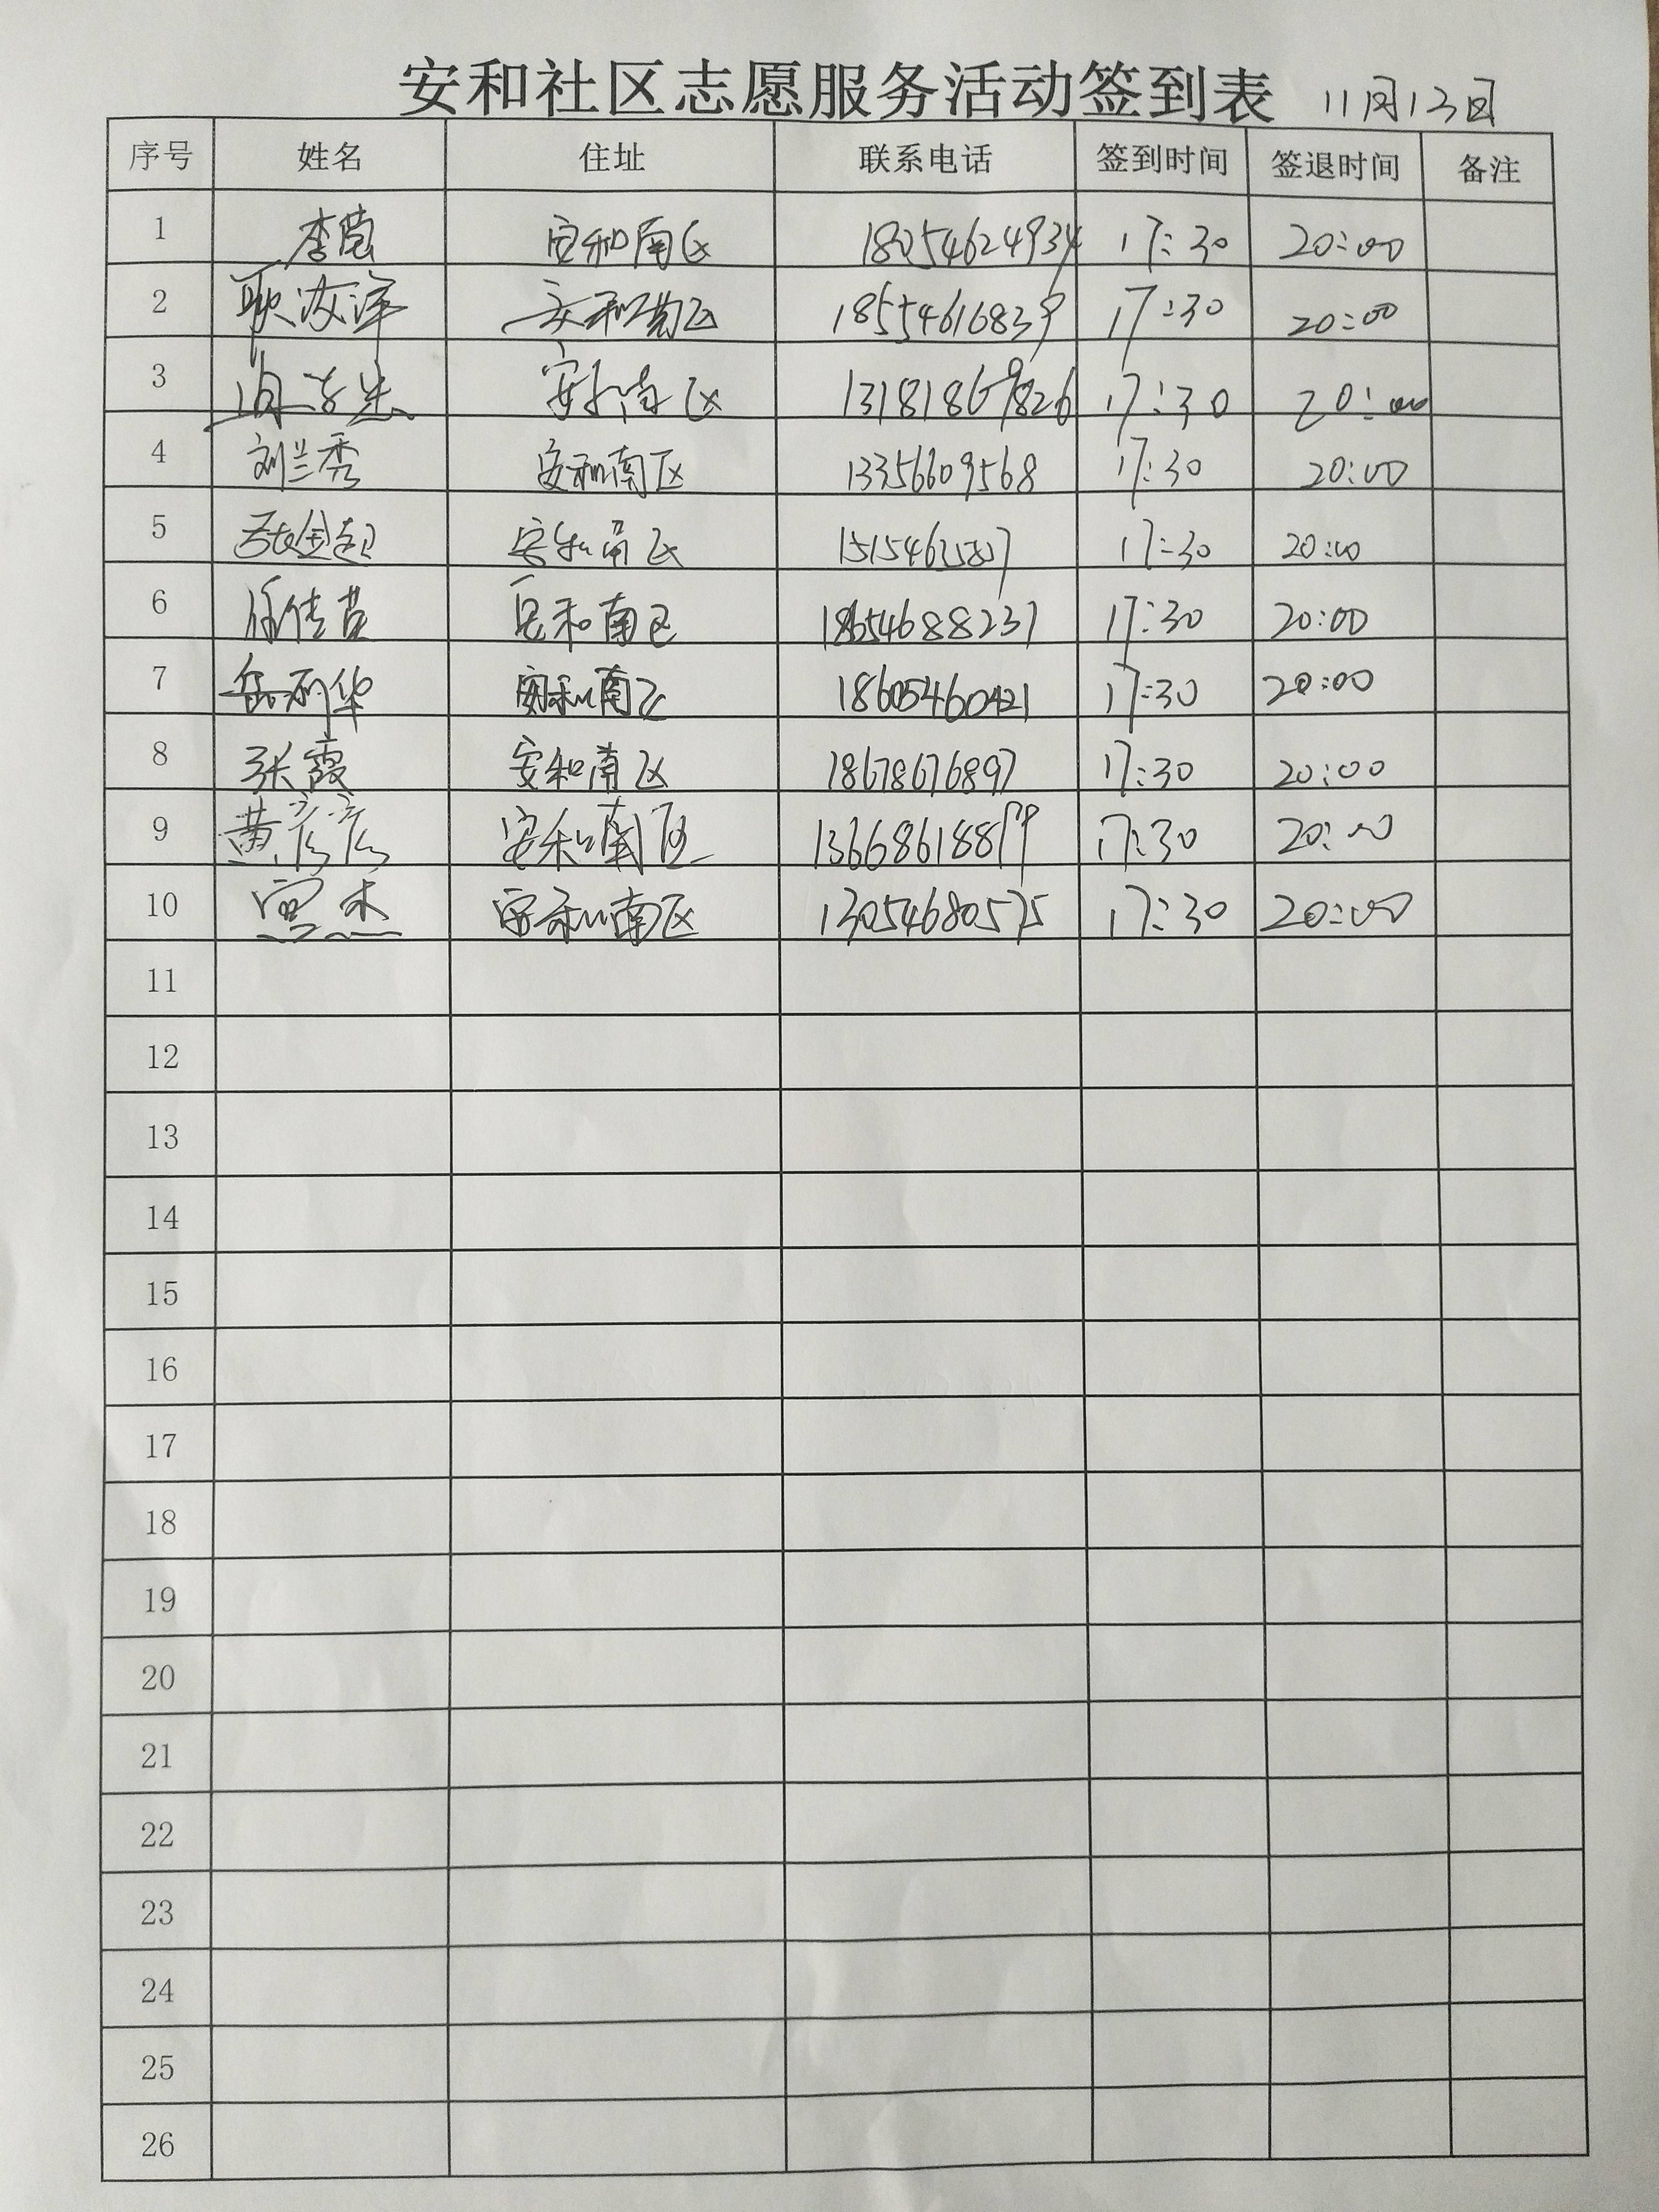 安和社区志愿服务活动签到表 11月13日
序号 姓名 住址 联系电话 签到时间 签退时间 备注
1 李莹 安和南区 18054624934 17:30 20:00
2 耿汝洋 安和南区 18554616839 17:30 20:00
3 安和南区 13181867826 17:30 20:00
4 刘兰秀 安和南区 13356609568 17:30 20:00
5 张金起 安和南区 17:30 20:00
6 任佳营 安和南区 18654688237 17:30 20:00
7 岳利华 安和南区 18605460421 17:30 20:00
8 张霞 安和南区 18678676897 17:30 20:00
9 黄彦彦 安和南区 17:30 20:00
10 安和南区 13054680575 17:30 20:00
11
12
13
14
15
16
17
18
19
20
21
22
23
24
25
26